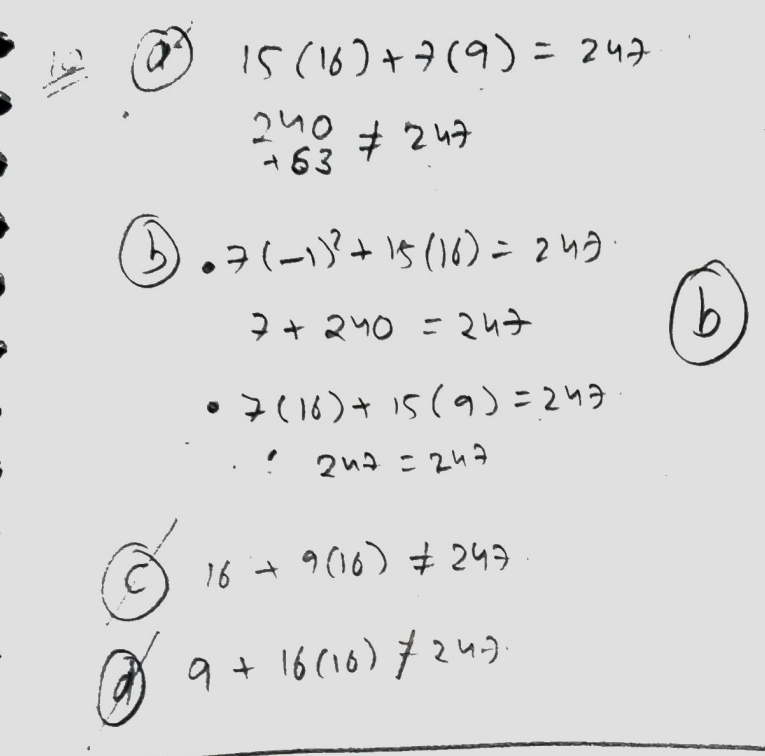 (a) 15(16)+7(9) = 247
240
+63 ≠ 247
(b) • 7(-1)² + 15(16) = 247
7 + 240 = 247
(b)
• 7(16)+ 15(9) = 247
247 = 247
(c) 16 + 9(16) ≠ 247
(d) 9 + 16(16) ≠ 247